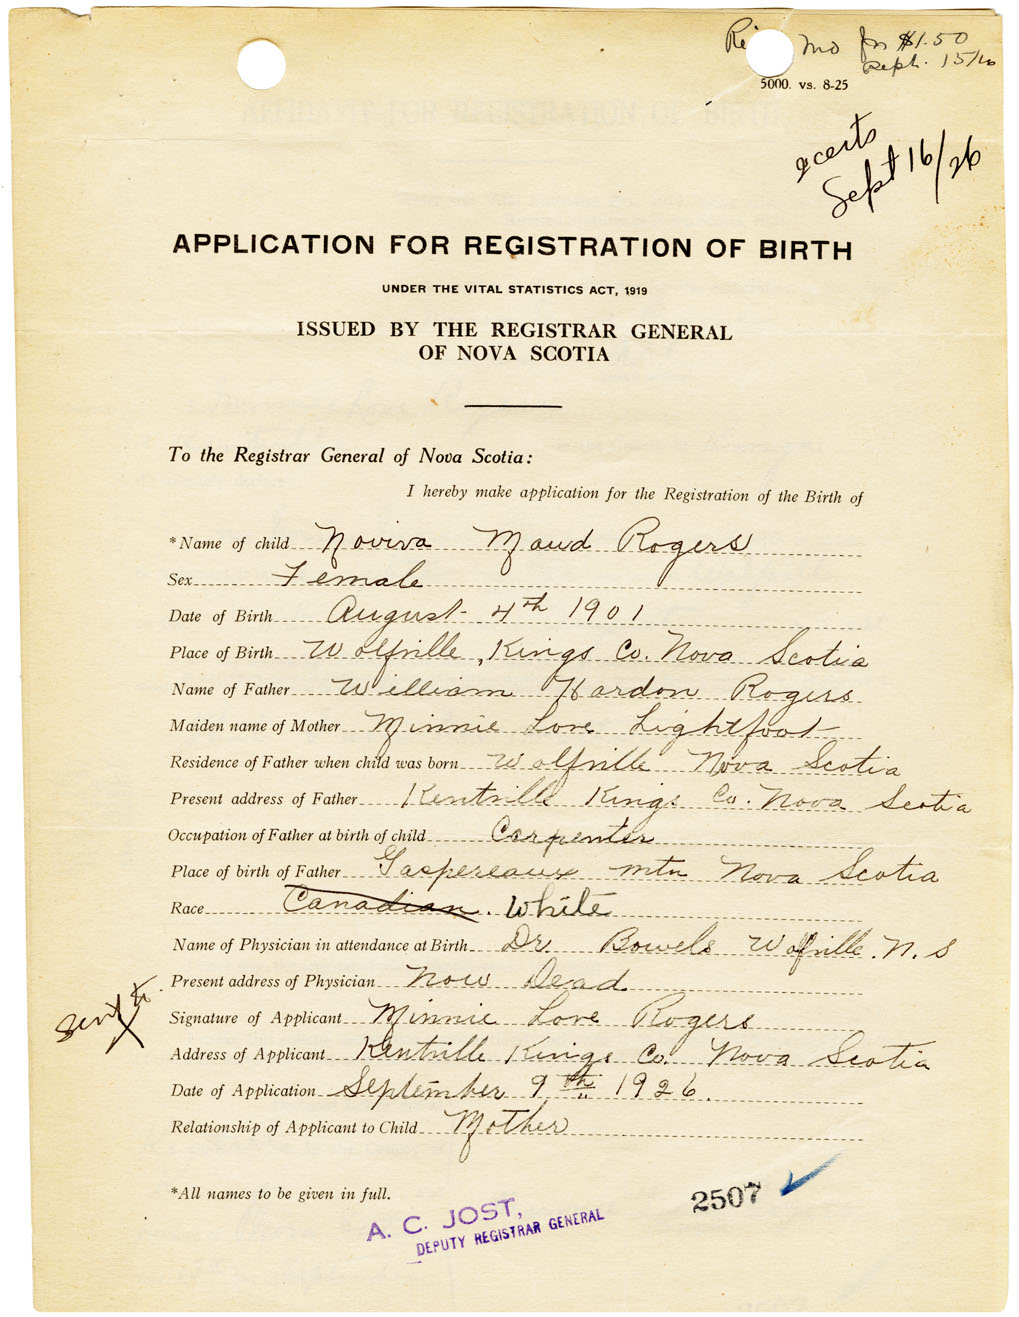 Mo for $1.50
Sept. 15/26
5000. vs. 8-25
2 certs
Sept 16/26
APPLICATION FOR REGISTRATION OF BIRTH
UNDER THE VITAL STATISTICS ACT, 1919
ISSUED BY THE REGISTRAR GENERAL
OF NOVA SCOTIA
To the Registrar General of Nova Scotia:
I hereby make application for the Registration of the Birth of
*Name of child Noviva Maud Rogers
Sex Female
Date of Birth August 4th 1901
Place of Birth Wolfville, Kings Co. Nova Scotia
Name of Father William Hardon Rogers
Maiden name of Mother Minnie Love Lightfoot
Residence of Father when child was born Wolfville Nova Scotia
Present address of Father Kentville Kings Co. Nova Scotia
Occupation of Father at birth of child Carpenter
Place of birth of Father Gaspereaux Mtn Nova Scotia
Race Canadian. White
Name of Physician in attendance at Birth Dr. Bowels Wolfville. N. S
Present address of Physician Now Dead
Signature of Applicant Minnie Love Rogers
Address of Applicant Kentville Kings Co. Nova Scotia
Date of Application September 9th 1926.
Relationship of Applicant to Child Mother
Sent to
X
*All names to be given in full.
2507
A. C. JOST,
DEPUTY REGISTRAR GENERAL